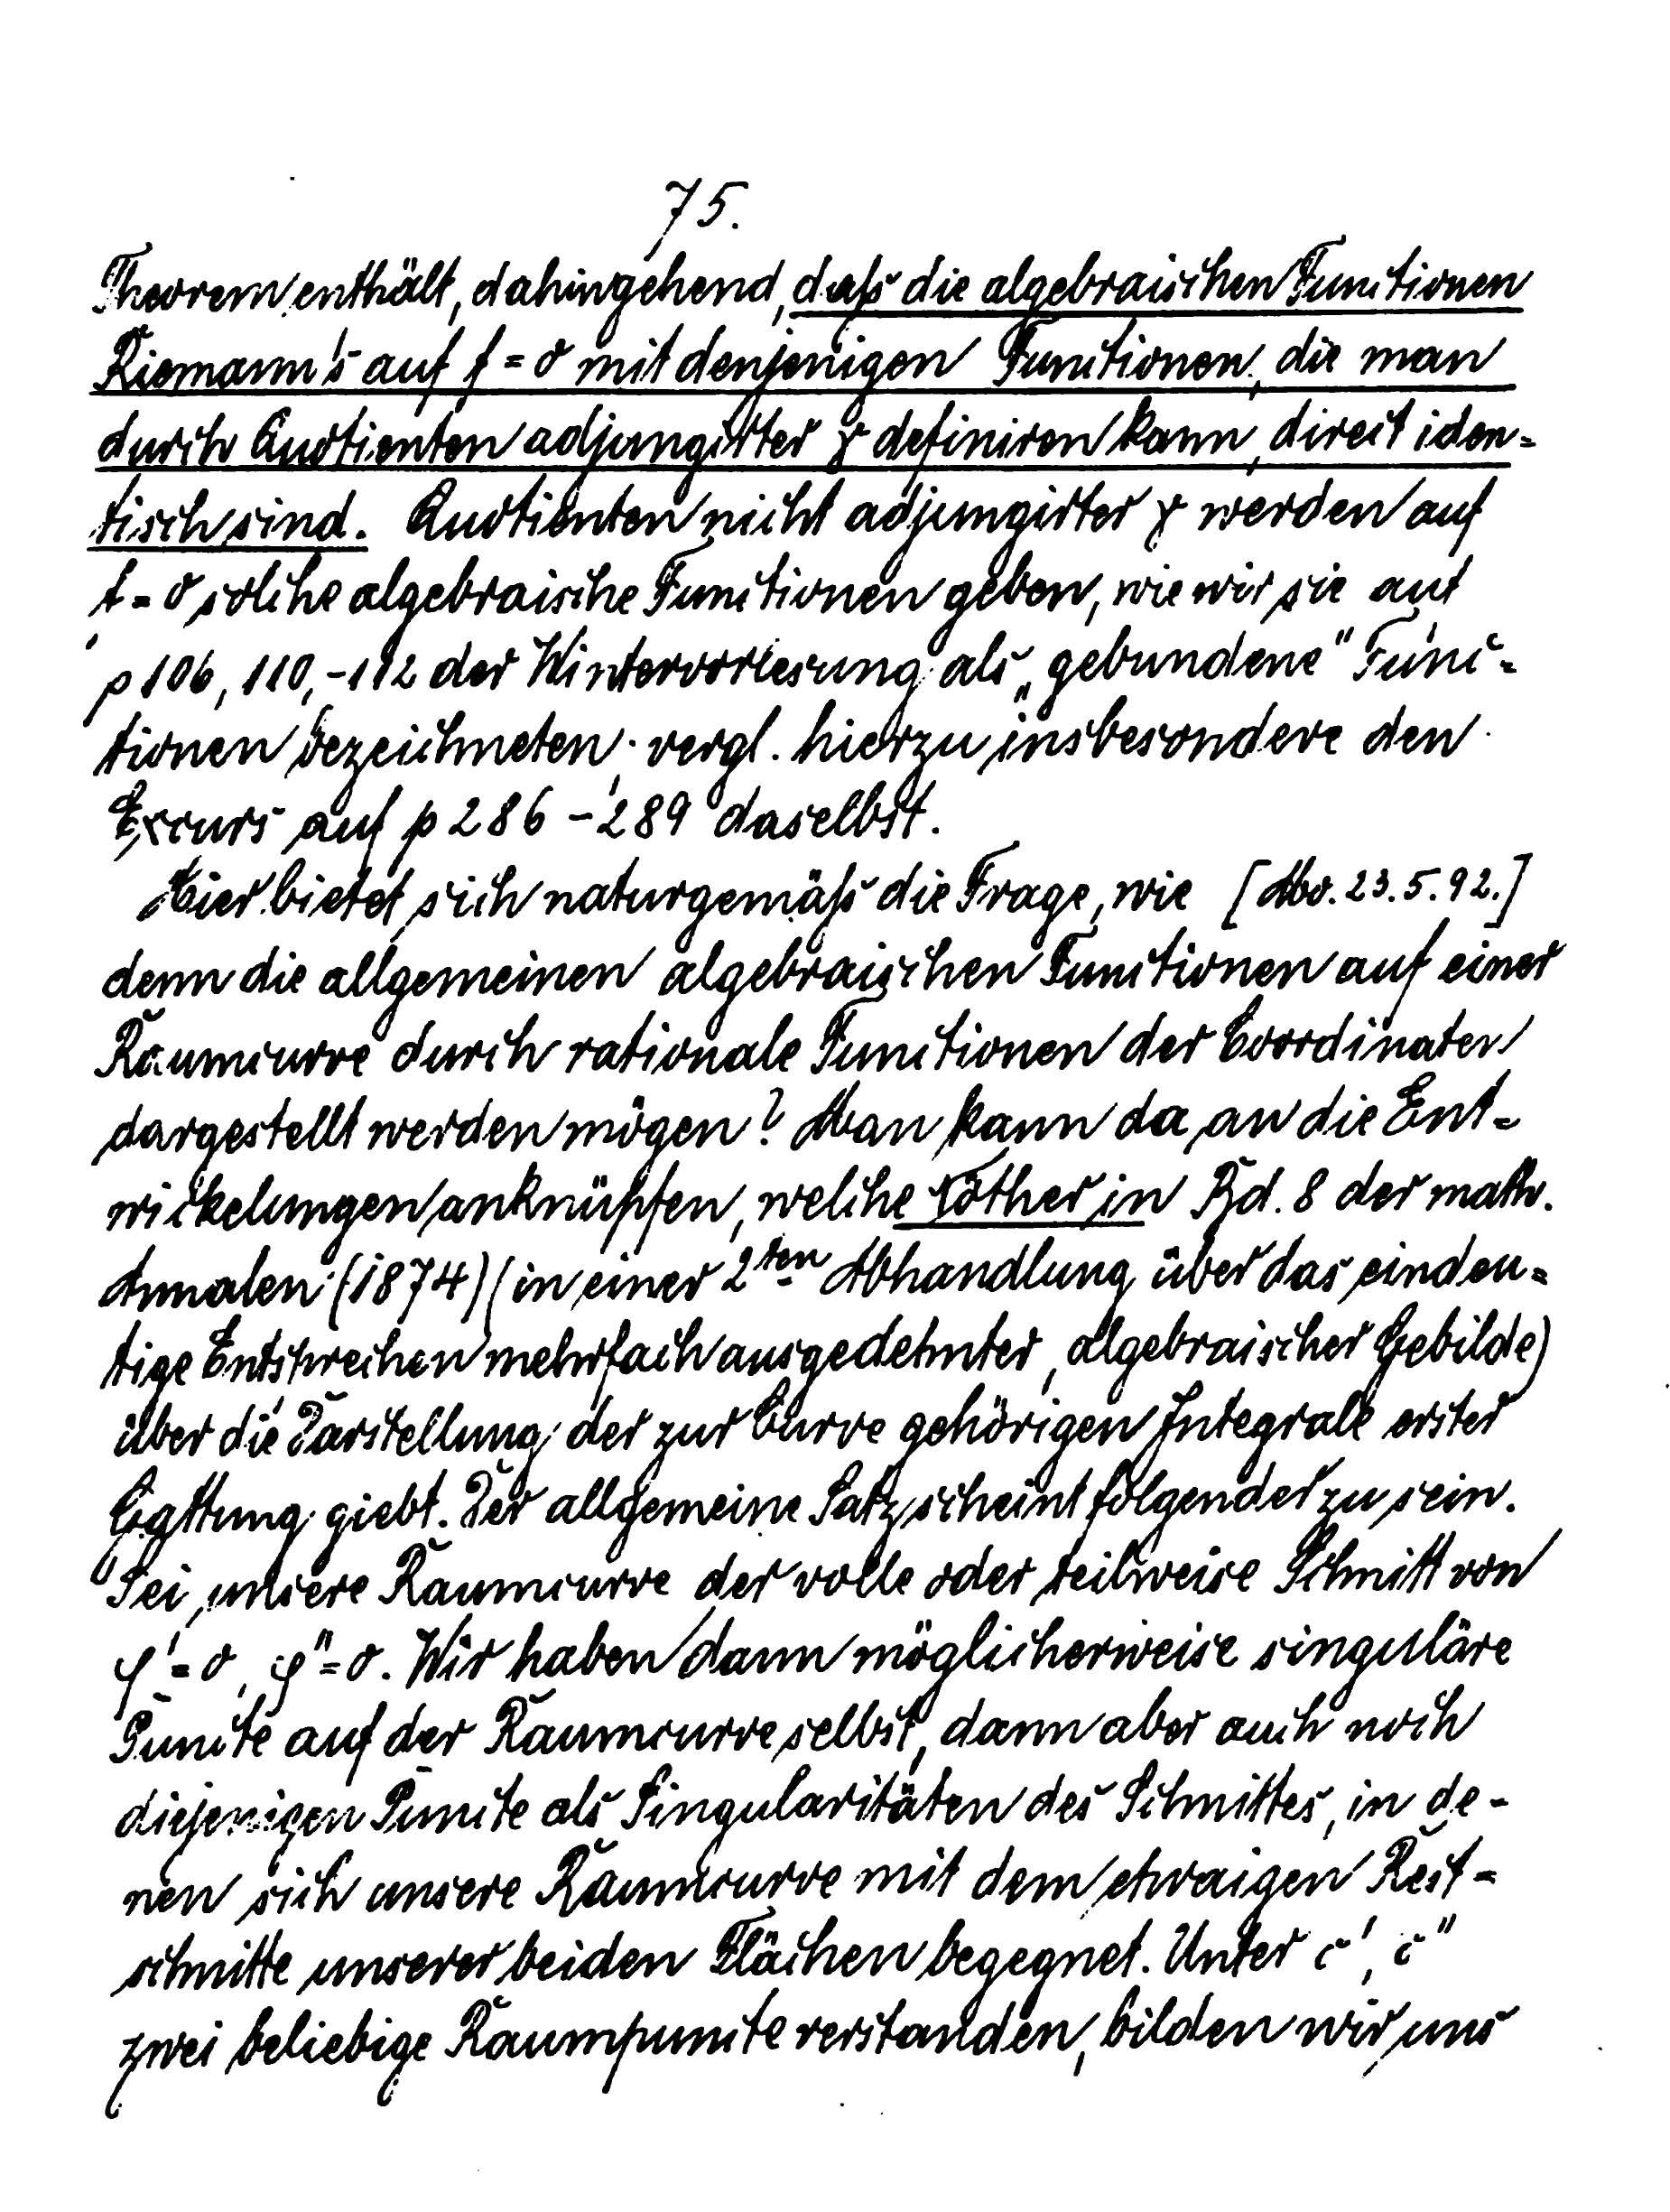 75.
Theorem enthält, dahingehend, daſs die algebraischen Functionen
Riemann's auf f = 0 mit denjenigen Functionen, die man
durch Quotienten adjungirter γ definiren kann, direct iden-
tisch sind. Quotienten nicht adjungirter γ werden auf
f = 0 solche algebraische Functionen geben, wie wir sie auf
p 106, 110,-112 der Wintervorlesung als „gebundene" Func-
tionen bezeichneten; vergl. hierzu insbesondere den
Excurs auf p 286 - 289 daselbst.
Hier bietet sich naturgemäſs die Frage, wie [Mo. 23.5.92.]
denn die allgemeinen algebraischen Functionen auf einer
Raumcurve durch rationale Functionen der Coordinaten
dargestellt werden mögen? Man kann da an die Ent-
wickelungen anknüpfen, welche Nöther in Bd. 8 der math.
Annalen (1874) (in einer 2ten Abhandlung über das eindeu-
tige Entsprechen mehrfach ausgedehnter, algebraischer Gebilde)
über die Darstellung der zur Curve gehörigen Integrale erster
Gattung giebt. Der allgemeine Satz scheint folgender zu sein.
Sei unsere Raumcurve der volle oder teilweise Schnitt von
φ' = 0, φ" = 0. Wir haben dann möglicherweise singuläre
Puncte auf der Raumcurve selbst, dann aber auch noch
diejenigen Puncte als Singularitäten des Schnittes, in de-
nen sich unsere Raumcurve mit dem etwaigen Rest-
schnitte unserer beiden Flächen begegnet. Unter c', c"
zwei beliebige Raumpuncte verstanden, bilden wir uns